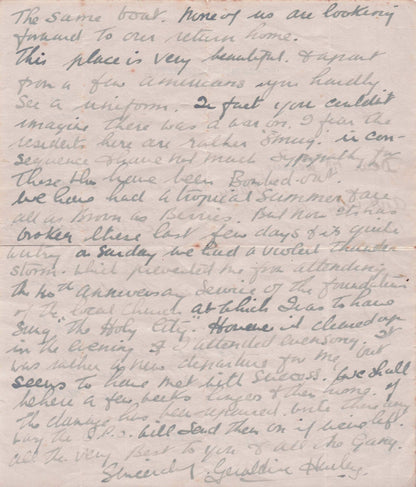 The same boat. None of us are looking
forward to our return home.
This place is very beautiful. & apart
from a few Americans you hardly
see a uniform. In fact you couldn't
imagine there was a war on. I fear the
residents here are rather "smug" in con-
sequence & have not much sympathy for
those who have been Bombed-out.
We have had a tropical summer & are
all as brown as Berries. But now it has
broken these last few days & is quite
wintry on Sunday we had a violent thunder
storm. which prevented me from attending
the 40th Anniversary Service of the foundation
of the local Church at which I was to have
sung "The Holy City". However it cleared up
in the evening & I attended evensong. It
was rather a new departure for me, but
seems to have met with success. We shall
be here a few weeks longer & then home. if
the damage has been repaired. write then any
way the G.P.O. will send them on if we've left.
all the very Best to you & all the Gang.
Sincerely. Geraldine